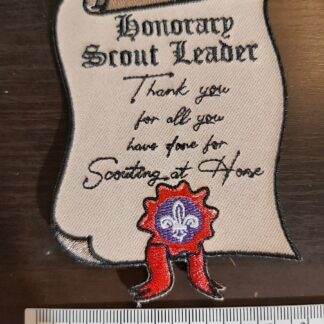 Honorary
Scout Leader
Thank you
for all you
have done for
Scouting at Home